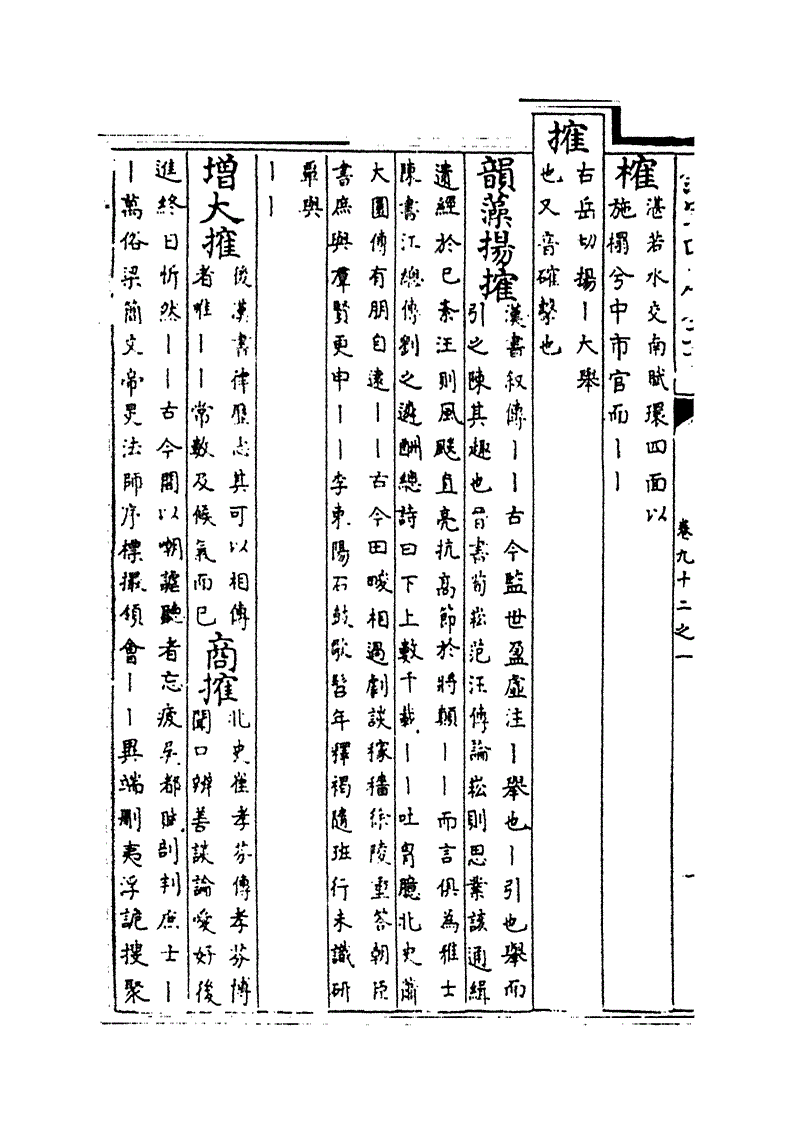 卷九十二之一
榷
湛若水交南賦環四面以
施榻兮中市官而||
搉
古岳切揚|大舉
也又音確擊也
韻藻揚搉
漢書叙傳||古今監世盈虛注|舉也|引也舉而
引之陳其趣也晉書荀崧范汪傳論崧則思業該通緝
遺經於已紊汪則風飈直亮抗高節於將顛||而言俱為雅士
陳書江總傳劉之遴酬總詩曰下上數千載||吐胷臆北史蕭
大圜傳有朋自遠||古今田畯相過劇談稼穡徐陵重答朝臣
書庶與羣賢更申||李東陽石鼓歌髫年釋褐隨班行未識研
覈與
||
增大搉
後漢書律歷志其可以相傳
者唯||常數及候氣而已
商搉
北史崔孝芬傳孝芬博
聞口辨善談論愛好後
進終日忻然||古今間以嘲謔聽者忘疲吳都賦剖判庶士|
|萬俗梁簡文帝旻法師序標撮領會||異端刪夷浮詭搜聚